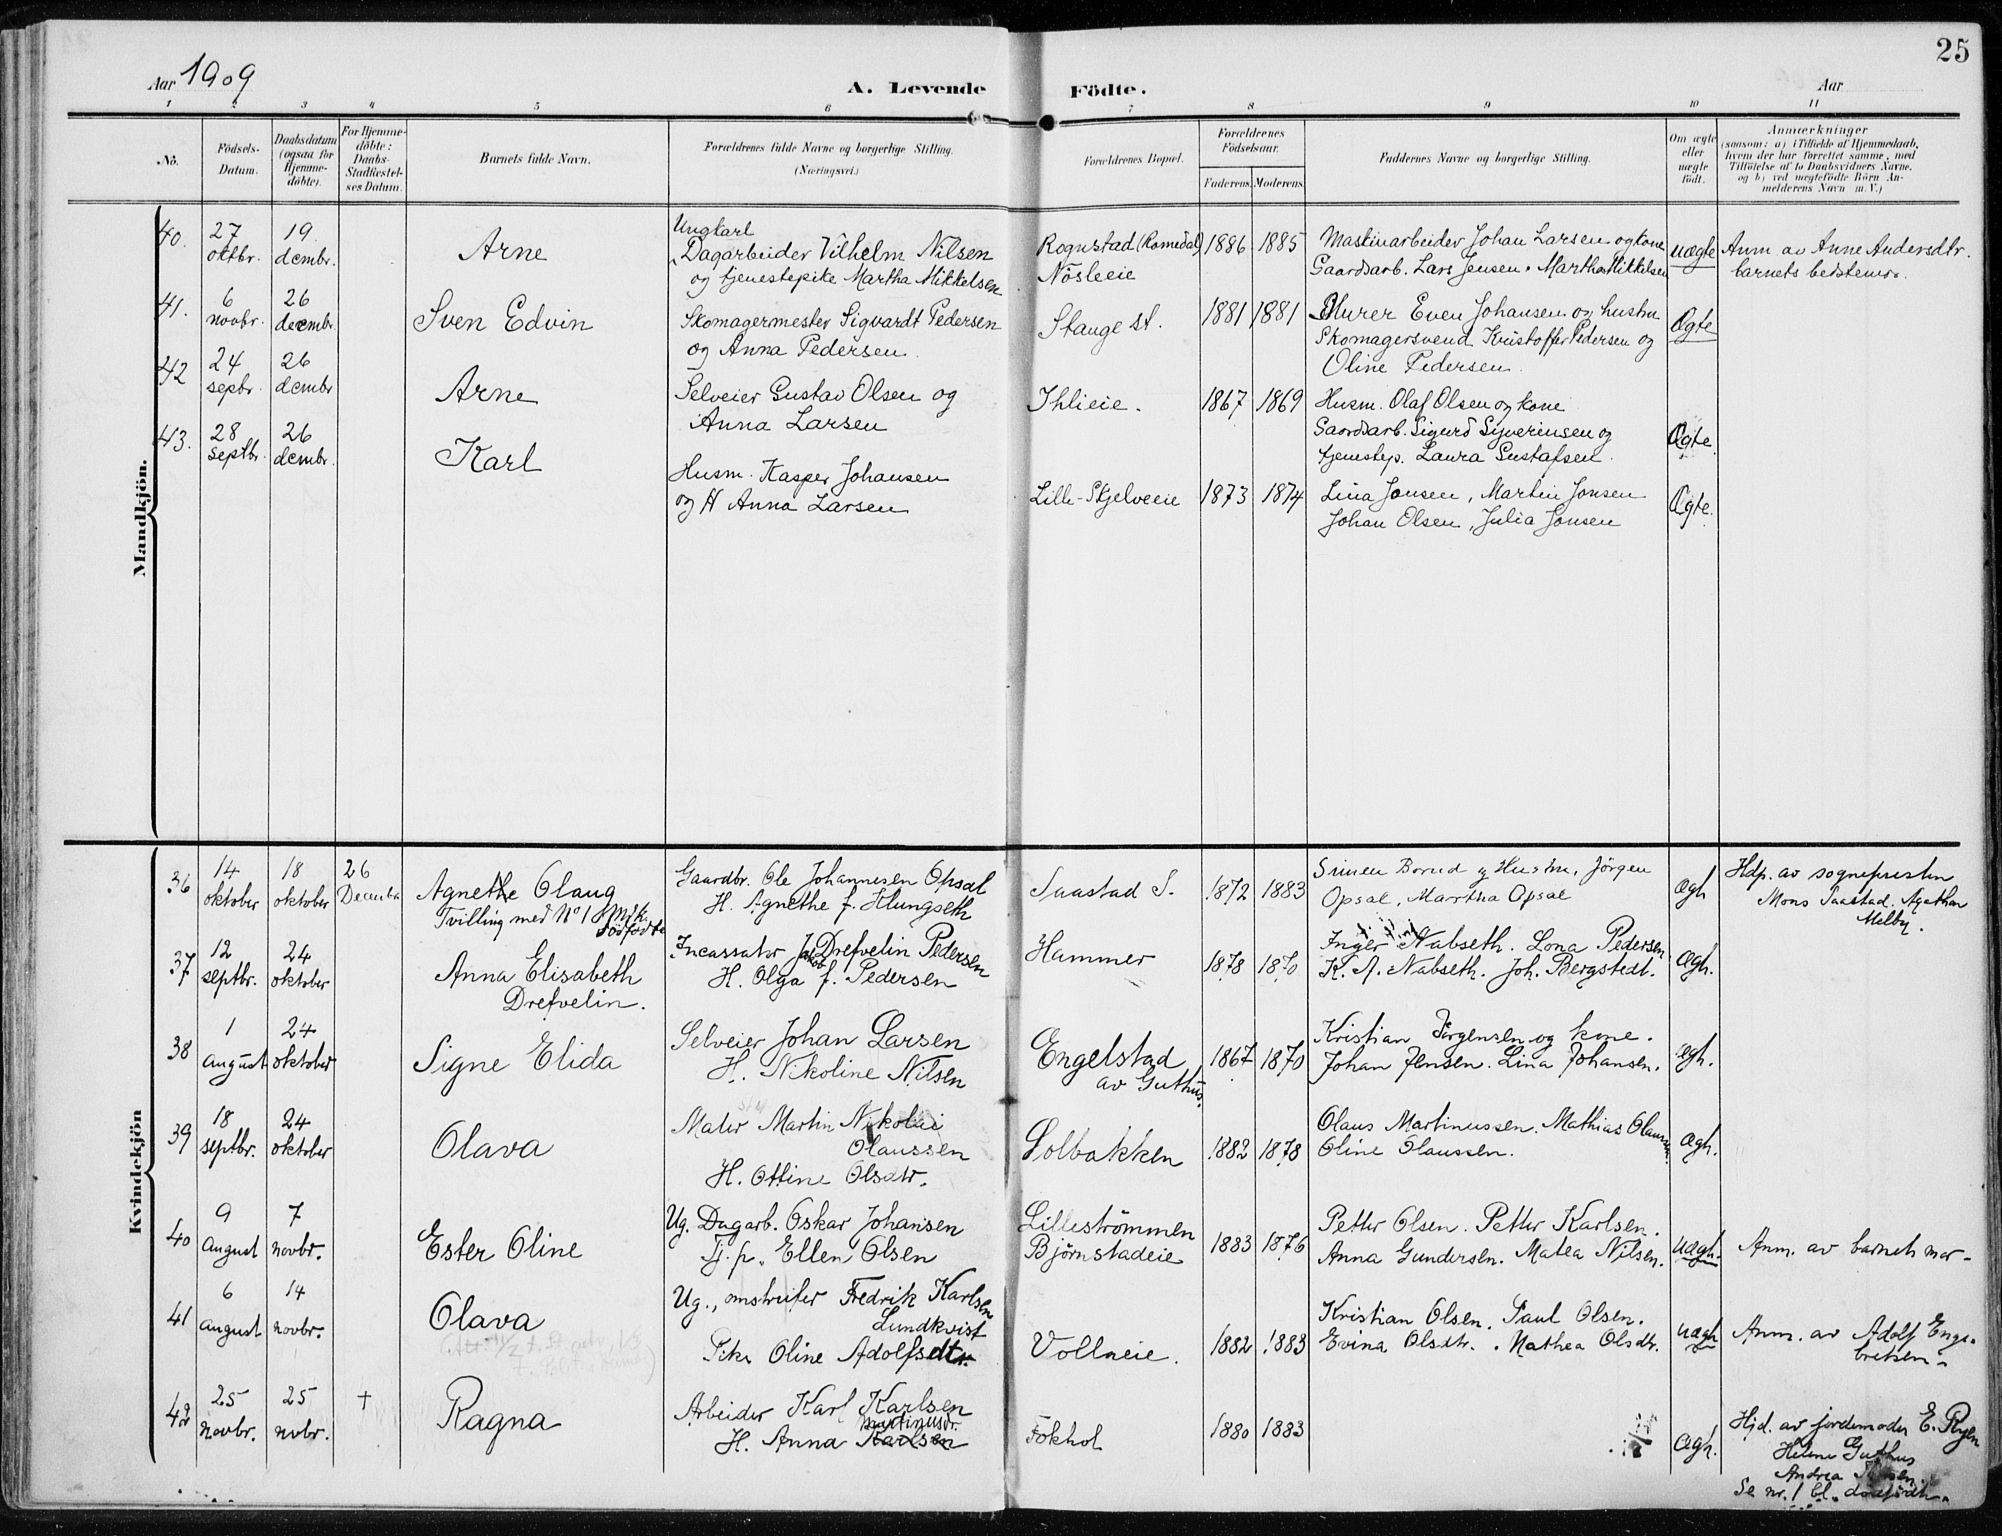 25
Aar 1909
A. Levende
Födte.
Aar
1 2 3 4 5 6 7 8 9 10 11
No.
Födsels-
Datum.
Daabsdatum
(ogsaa for
Hjemme-
döbte).
For Hjemme-
döbte:
Daabs-
Stadfæstel-
ses Datum.
Barnets fulde Navn.
Forældrenes fulde Navne og borgerlige Stilling.
(Næringsvei.)
Forældrenes Bopæl.
Forældrenes
Födselsaar.
Faderens. Moderens.
Faddernes Navne og borgerlige Stilling.
Om ægte
eller
uægte
födt.
Anmærkninger
(saasom: a) i Tilfælde af Hjemmedaab,
hvem der har forrettet samme, med
Tilföielse af to Daabsvidners Navne.
og b) ved uægtefödte Börn An-
melderens Navn m. V.)
Mandkjön.
40. 27 oktbr. 19. dcmbr. Arne
Ungkarl
Dagarbeider Vilhelm Nilsen
og tjenestepike Martha Mikkelsen
Rognstad (Romedal)
Nösleeie
1886 1885
Maskinarbeider Johan Larsen og kone
Gaardsarb. Lars Jensen. Martha Mikkelsen
uægte
Anm av Anne Andersdtr.
barnets bedstemor.
41. 6 novbr. 26 decmbr. Sven Edvin
Skomagermester Sigvardt Pedersen
og Anna Pedersen.
Stange st.
1881 1881
Murer Even Johansen og hustru
Skomagersvend Kristoffer Pedersen og
Oline Pedersen.
Ægte
42 24 septbr. 26 dcmbr Arne
Selveier Gustav Olsen og
Anna Larsen
Ihlieie.
1867 1869
Husm. Olaf Olsen og kone
Gaardsarb. Sigurd Syverinsen og
tjenestep. Laura Gustafsen.
Ægte.
43. 28 septbr. 26 dcmbr. Karl
Husm. Kasper Johansen
og H Anna Larsen
Lille-Skjelveeie
1873 1874
Lina Jonsen, Martin Jonsen
Johan Olsen, Julia Jonsen
Ægte.
Kvindekjön
36 14 oktober 18 oktober 26 Decembr
Agnethe Olaug
Tvilling med No 1
dödfødte
Gaardbr. Ole Johannesen Opsal
H. Agnethe f. Flungseth
Saastad S.
1872 1883
Simen Borud og Hustru, Jörgen
Opsal, Martha Opsal
ægh
Hdp. av sognepresten
Mons Saastad. Agathon
Melby.
37 12 septbr. 24 oktober
Anna Elisabeth
Drefvelin.
Incassator Jakob Drefvelin Pedersen
H. Olga f. Pedersen
Hammer
1878 1870
Inger Nabseth. Lona Pedersen
K. A. Nabseth. Joh. Bergstedt.
ægh.
38 1 august 24 oktober
Signe Elida
Selveier Johan Larsen
H. Nikoline Nilsen
Engelstad
av Guthus.
1867 1870
Kristian Jørgensen og kone.
Johan Jensen. Lina Johansen.
ægh.
39 18 septbr. 24 oktober
Olava
Maler Martin Nikolai
Olaussen
H. Ottine Olsdtr.
Solbakken
1882 1878
Olaus Martinussen. Mathias Olaussen
Oline Olaussen.
ægh.
40 9 august 7 novbr.
Ester Oline
Ug. Dagarb. Oskar Johansen
Tj. p. Ellen Olsen
Lilleströmmen
Björnstadeie
1883 1876
Petter Olsen. Petter Karlsen.
Anna Gundersen. Matea Nilsen.
uægh.
Anm. av barnets mor-
41 6 august 14 novbr.
Olava
Ug., omstreifer Fredrik Karlsen
Lundkvist
Pike Oline Adolfsdtr.
Vollneie.
1882 1883
Kristian Olsen. Paul Olsen.
Evina Olsdtr. Mathea Olsdtr.
uægh
Anm. av Adolf Enge-
bretsen.
42 25 novbr. 25 nvbr. +
Ragna
Arbeider Karl Karlsen
martinusdr.
H. Anna Karlsen
Fokhol
1880 1883
ægh.
Hjd. av jordemoder E. Ryen
Helene Guthus
Andrea
Se nr. 1 bl. dødfødte.